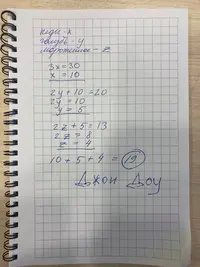 кеды - x
гантеля - y
мороженое - z
3x = 30
x = 10
2y + 10 = 20
2y = 10
y = 5
2z + 5 = 13
2z = 8
z = 4
10 + 5 + 4 = 19
Джон Доу